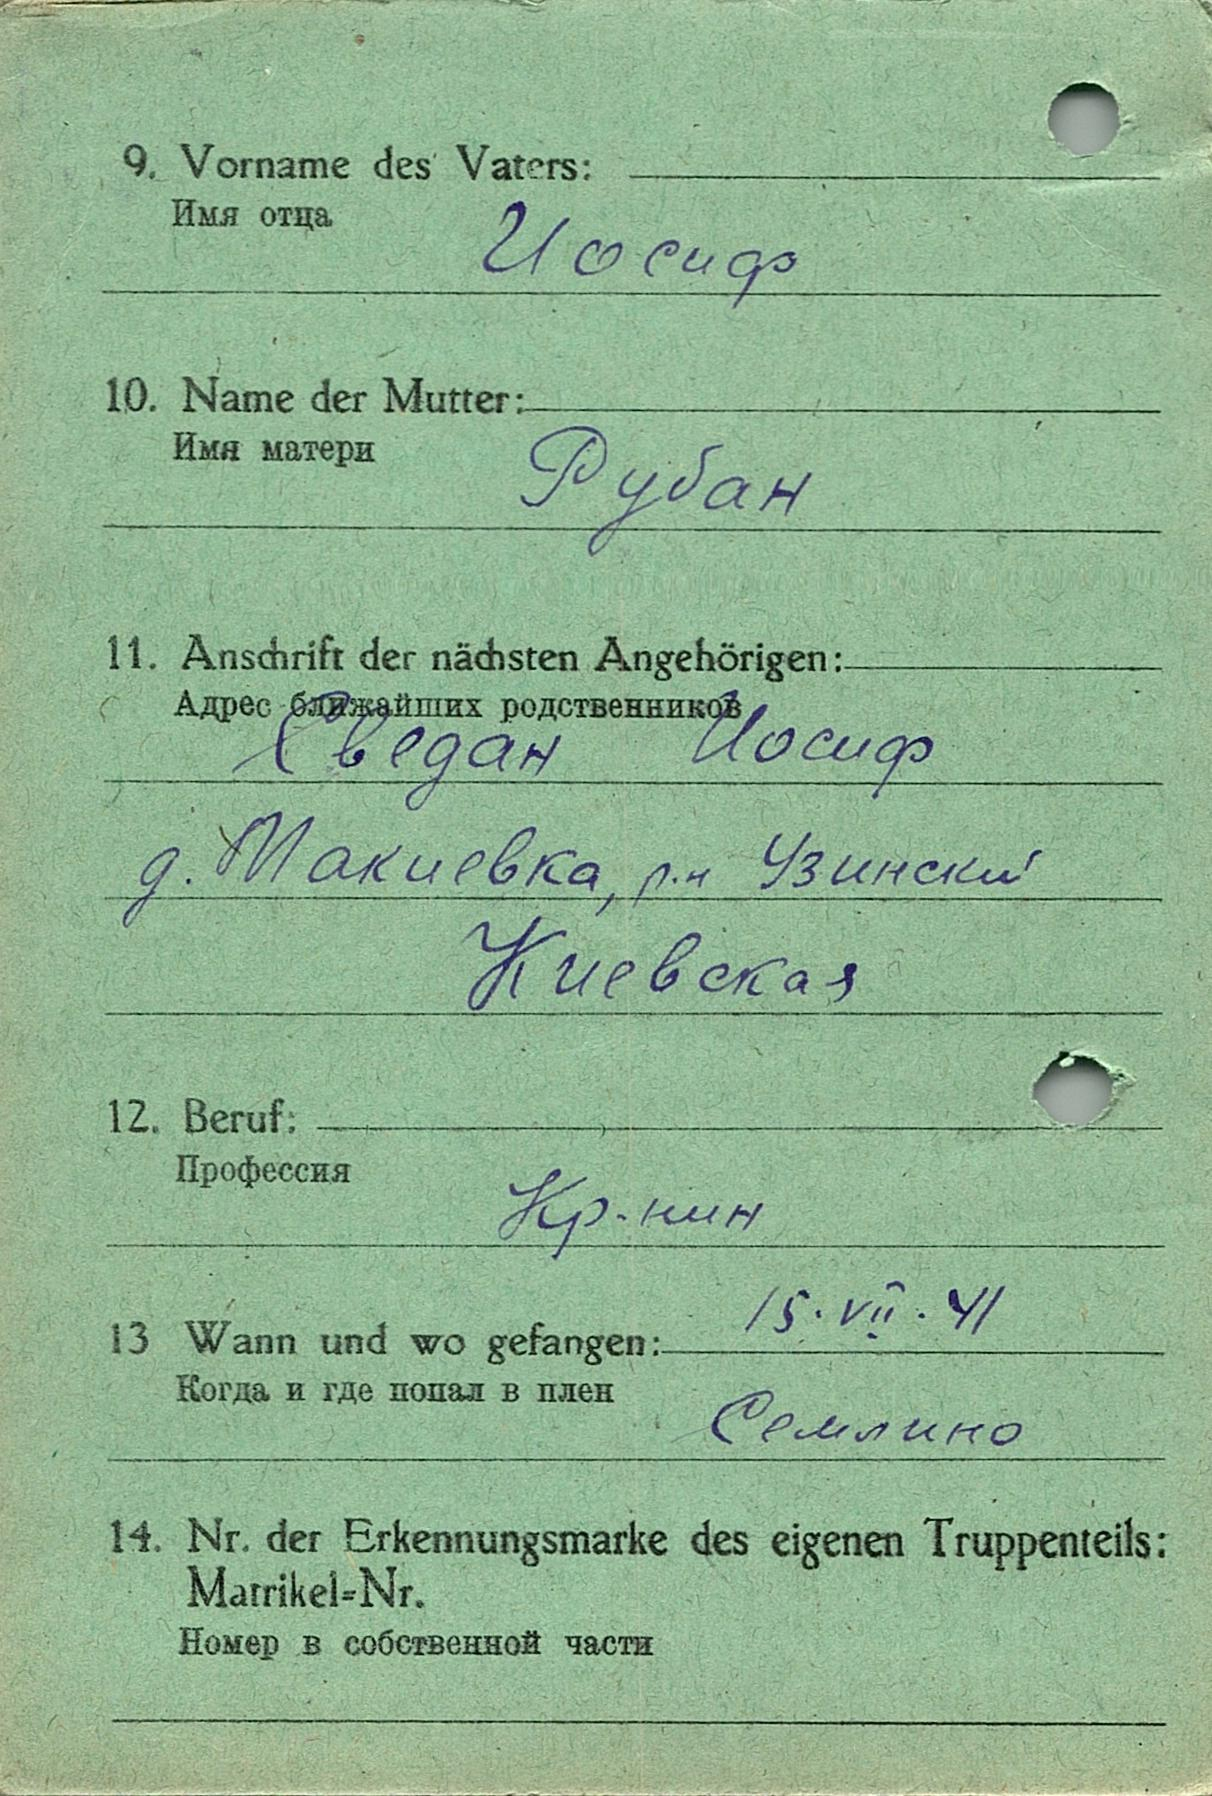 9. Vorname des Vaters:
Имя отца
Иосиф
10. Name der Mutter:
Имя матери
Рубан
11. Anschrift der nächsten Angehörigen:
Адрес ближайших родственников
Сведан Иосиф
д. Макиевка, р-н Узинский
Киевская
12. Beruf:
Профессия
Кр-нин
15.VII.41
13 Wann und wo gefangen:
Когда и где попал в плен
Семлино
14. Nr. der Erkennungsmarke des eigenen Truppenteils:
Matrikel=Nr.
Номер в собственной части